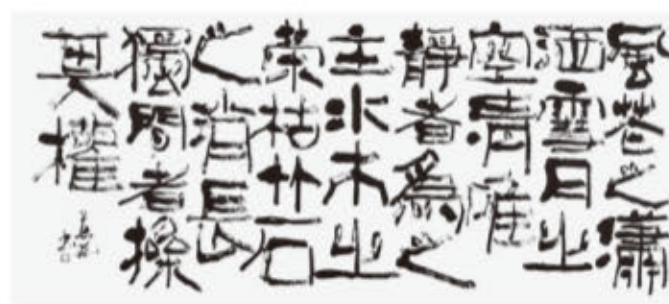 風花之瀟
洒雪月之
空清唯
靜者爲之
主水木之
榮枯竹石
之消長
獨閒者操
其權